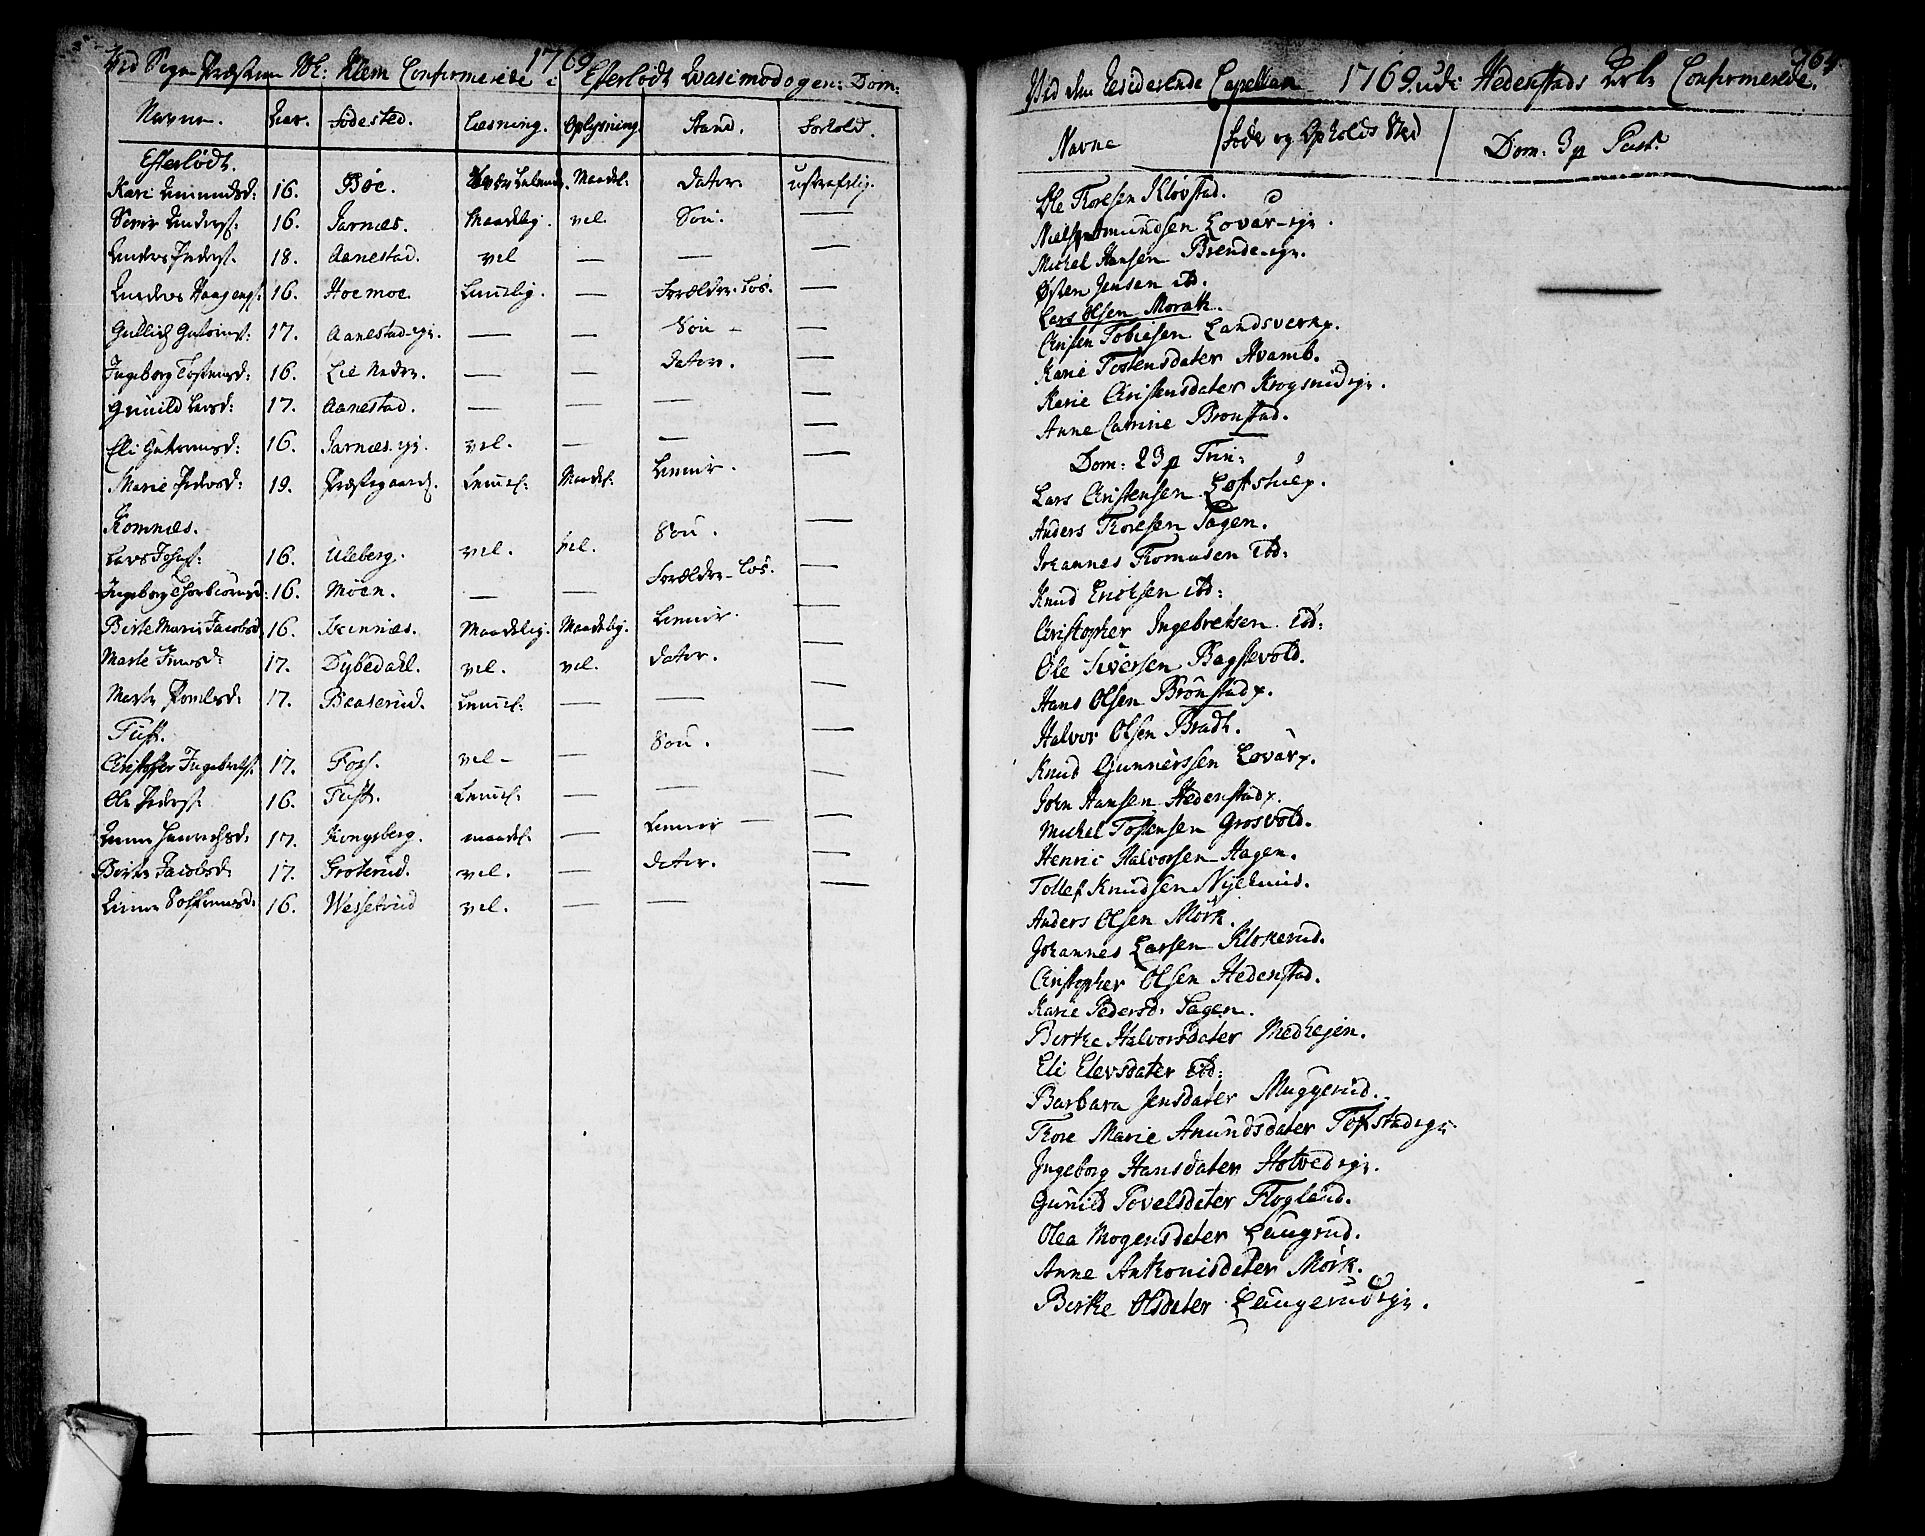 Ved Sogne Præsten Mr: Klem Confirmerede 1769 i Efterlødt Qvasimodogen: Dom:
Navne. Aar. Fødested. Læsning. Oplysning. Stand. Forhold.
Efterlødt.
Kari Amundsd: 16. Bøe. Maadel: Datter. ustraffelig.
Anders: 16. Jarnæs. Maadelig. vel. Søn. —
Anders Peders: 18. Aanestad. vel — — —
Anders Haagens: 16. Hoemoe. Temelig. — Forældre-Løs. —
Gullich Guttorms: 17. Aanestad-eje. — — Søn — —
Ingeborg Tostensd: 16. Lie Nedre. — — Datter. —
Gunild Larsd: 17. Aanestad. — — — —
Eli Guttormsd: 16. Jarnæs-eje. vel. — — —
Marie Pedersd: 19. Præstegaard. Temel: Maadel: —
Komnæs.
Lars Josefs: 16. Uleberg. vel. vel. Søn. —
Ingeborg Thorbiørnsd: 16. Moen. — — Forældre-Løs. —
Birte Marie Jacobsd: 16. Maadelig. Maadelig. —
Marte 17. Dybedahl. vel. vel. Datter. —
Marte Povelsd: 17. Baaserud. Temel: — — —
Tuft.
Christopher Ingebrets: 17. Foss. vel — — Søn. —
Ole Peders: 16. Tuft. Temel: — — —
17. Kongsberg. maadel: — —
Birte Jacobsd: 17. Groterud. vel. — Datter. —
16. Wesseterud vel. — — —
364.
Ved den Residerende Capellan 1769 udi Hedenstads Kirke Confirmerede.
Navne Føde og Opholds Sted Dom: 3 p Pasc:
Ole Thoresen Kløvstad.
Niels Amundsen Lovar-eje.
Michel Hansen Brende-eje.
Østen Jensen ibd.
Lars Olsen Morath.
Christen Tobiesen Landsverk.
Karie Tostensdater Hvamb.
Karie Christensdater Krogsrudeje.
Anne Catrine Brønstad.
Dom: 23 p Trin:
Lars Christensen Loftstue.
Anders Thoresen Sagen.
Johannes Thomasen ibd:
Knud Erichsen ibd:
Christopher Ingebretsen ibd:
Ole Siversen Bagsevold.
Hans Olsen Brønstad.
Halvor Olsen Bradt.
Knud Gunnerssen Lovar.
John Hansen Hedenstad.
Michel Tostensen Grosvold.
Henric Halvorsen Hagen.
Tollef Knudsen
Anders Olsen Mørk.
Johannes Larsen Klokerud.
Christopher Olsen Hedenstad.
Karie Pedersd: Sagen.
Birthe Halvorsdater Medhejen.
Eli Elevsdater ibd:
Barbara Jensdater Muggerud.
Thore Marie Amundsdater Tofstadeje.
Ingeborg Hansdater Hotvedeje.
Gunild Povelsdater Flogland.
Olea Mogensdater Laugrud.
Anne Anthonisdater Mørk.
Birthe Olsdater Laugerudeje.